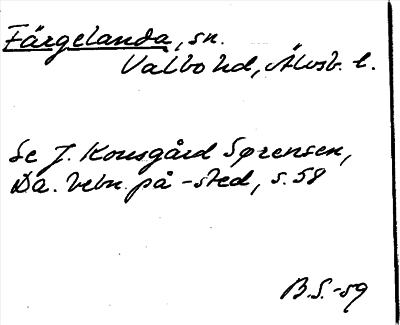 Färgelanda, sn.
Valbo hd, Älvsb. l.
Se J. Kousgård Sørensen,
Da. bebn. på -sted, s. 58
B.S. -59